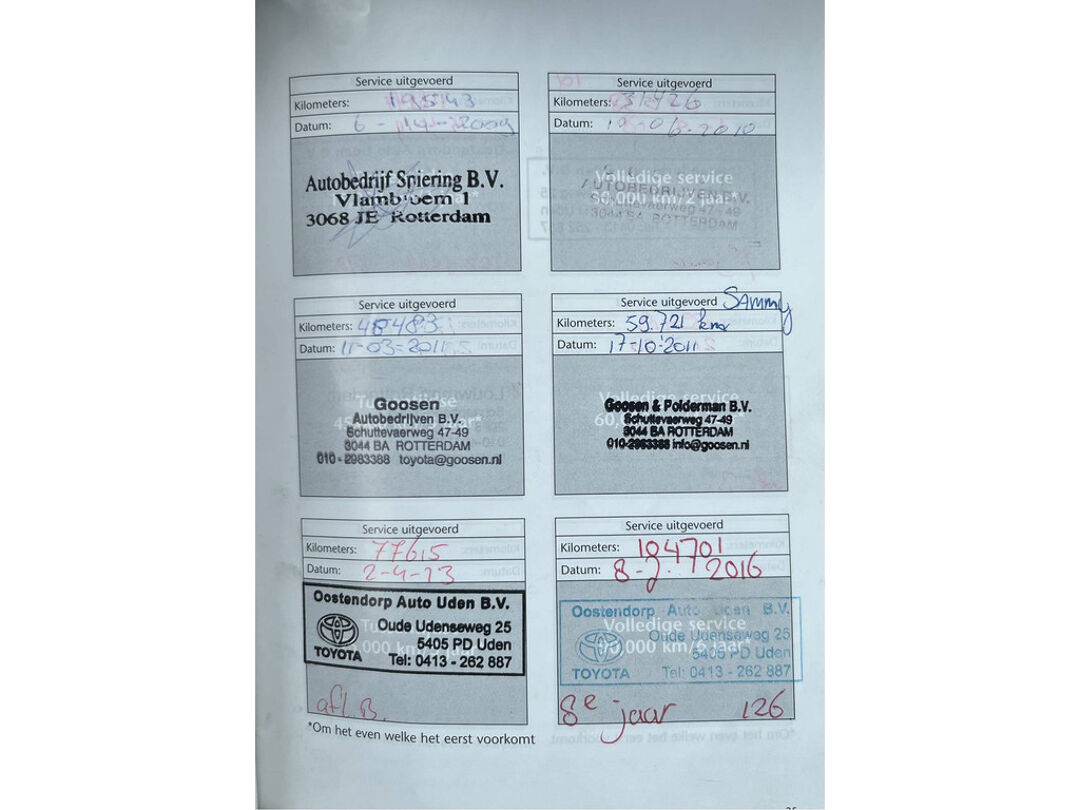 Service uitgevoerd
Kilometers:
Datum: 6 - 2009
Autobedrijf Spiering B.V.
Vlambloem 1
3068 JE Rotterdam
Service uitgevoerd
Kilometers: 31426
Datum: 2010
Volledige service
30,000 km/2 jaar*
AUTOBEDRIJVEN B.V.
Schuttevaerweg 47-49
3044 BA ROTTERDAM
Service uitgevoerd
Kilometers: 48483
Datum: 11-03-2011
Goosen
Autobedrijven B.V.
Schuttevaerweg 47-49
3044 BA ROTTERDAM
010-2983388 toyota@goosen.nl
Service uitgevoerd Sammy
Kilometers: 59.721 km
Datum: 17-10-2011
Volledige service
Goosen & Polderman B.V.
Schuttevaerweg 47-49
3044 BA ROTTERDAM
010-2983388 info@goosen.nl
Service uitgevoerd
Kilometers: 77615
Datum: 2-4-13
Oostendorp Auto Uden B.V.
Oude Udenseweg 25
5405 PD Uden
TOYOTA
Tel: 0413 - 262 887
afl. B.
Service uitgevoerd
Kilometers: 104701
Datum: 8- 2016
Oostendorp Auto Uden B.V.
Volledige service
Oude Udenseweg 25
90,000 km/6 jaar*
5405 PD Uden
TOYOTA
Tel: 0413 - 262 887
8e jaar 126
*Om het even welke het eerst voorkomt